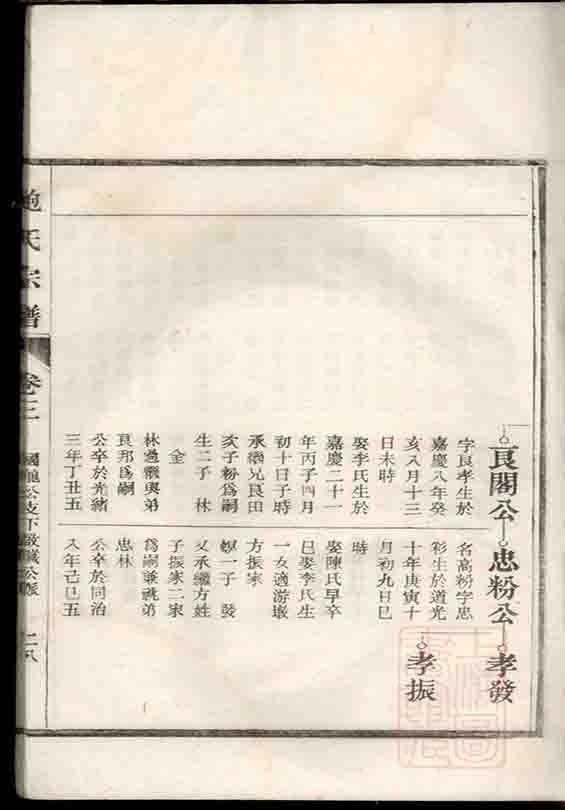 良閣公
字良孝生於
嘉慶八年癸
亥八月十三
日未時
娶李氏生於
嘉慶二十一
年丙子四月
初十日子時
承繼兄良田
次子粉為嗣
生二子 林
金
林過繼與弟
良邦為嗣
公卒於光緒
三年丁丑五
忠粉公
名高粉字忠
彩生於道光
十年庚寅十
月初九日巳
時
娶陳氏早卒
巳娶李氏生
一女適游墩
方振家
繼一子 發
又承繼方姓
子振家二家
為嗣兼祧弟
忠林
公卒於同治
八年己巳五
孝發
孝振
氏宗譜
卷三
國 公支下 公派
二八